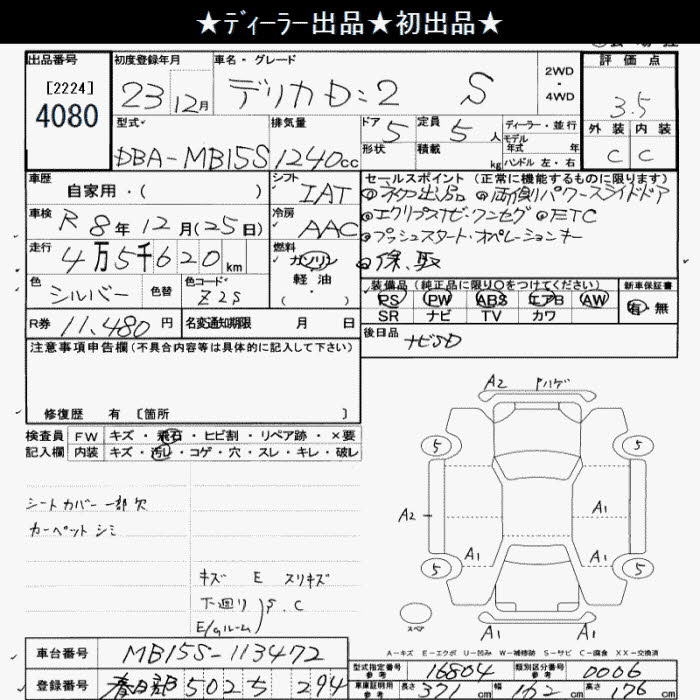 ★ディーラー出品★初出品★
出品番号
[2224]
4080
初度登録年月
23 12月
車名・グレード
デリカD:2 S
2WD
・
4WD
評価点
3.5
外装 内装
C C
型式
DBA-MB15S
排気量
1240cc
ドア 5
形状
定員 5人
積載 kg
ディーラー・並行
モデル
年式 年
ハンドル 左・右
車歴
自家用・( )
シフト
IAT
車検 R8年12月(25日)
冷房
AAC
走行 4万5千620km
燃料
ガソリン
軽油
( ・ )
色
シルバー
色替
色コード
Z2S
R券 11,480円
名変通知期限 月 日
セールスポイント (正常に機能するものに限ります)
◎ネクステージ出品 ◎両側パワースライドドア
◎エクリプスナビ・ワンセグ ◎ETC
◎プッシュスタート・オペレーションキー
◎保、取
装備品 (純正品に限り○をつけてください)
PS PW ABS エアB AW
SR ナビ TV カワ
新車保証書
有・無
後日品
ナビSD
注意事項申告欄(不具合内容等は具体的に記入して下さい)
修復歴 有 [箇所 ]
検査員
記入欄
FW キズ・飛石・ヒビ割・リペア跡・×要
内装 キズ・汚レ・コゲ・穴・スレ・キレ・破レ
シートカバー 一部欠
カーペットシミ
キズ E スリキズ
下廻り)S.C
E/gルーム)
A2 Pハゲ
5 5
A1
A2
A1 A1
5 5
スペア
A1 A1
A-キズ E-エクボ U-凹み W-補修跡 S-サビ C-腐食 XX-交換済
車台番号 MB15S-113472
登録番号 春日部 502 ち 294
型式指定番号
参考
16804
類別区分番号
参考
0006
車庫証明用
参考
長さ 371cm 幅 162cm 高さ 176cm